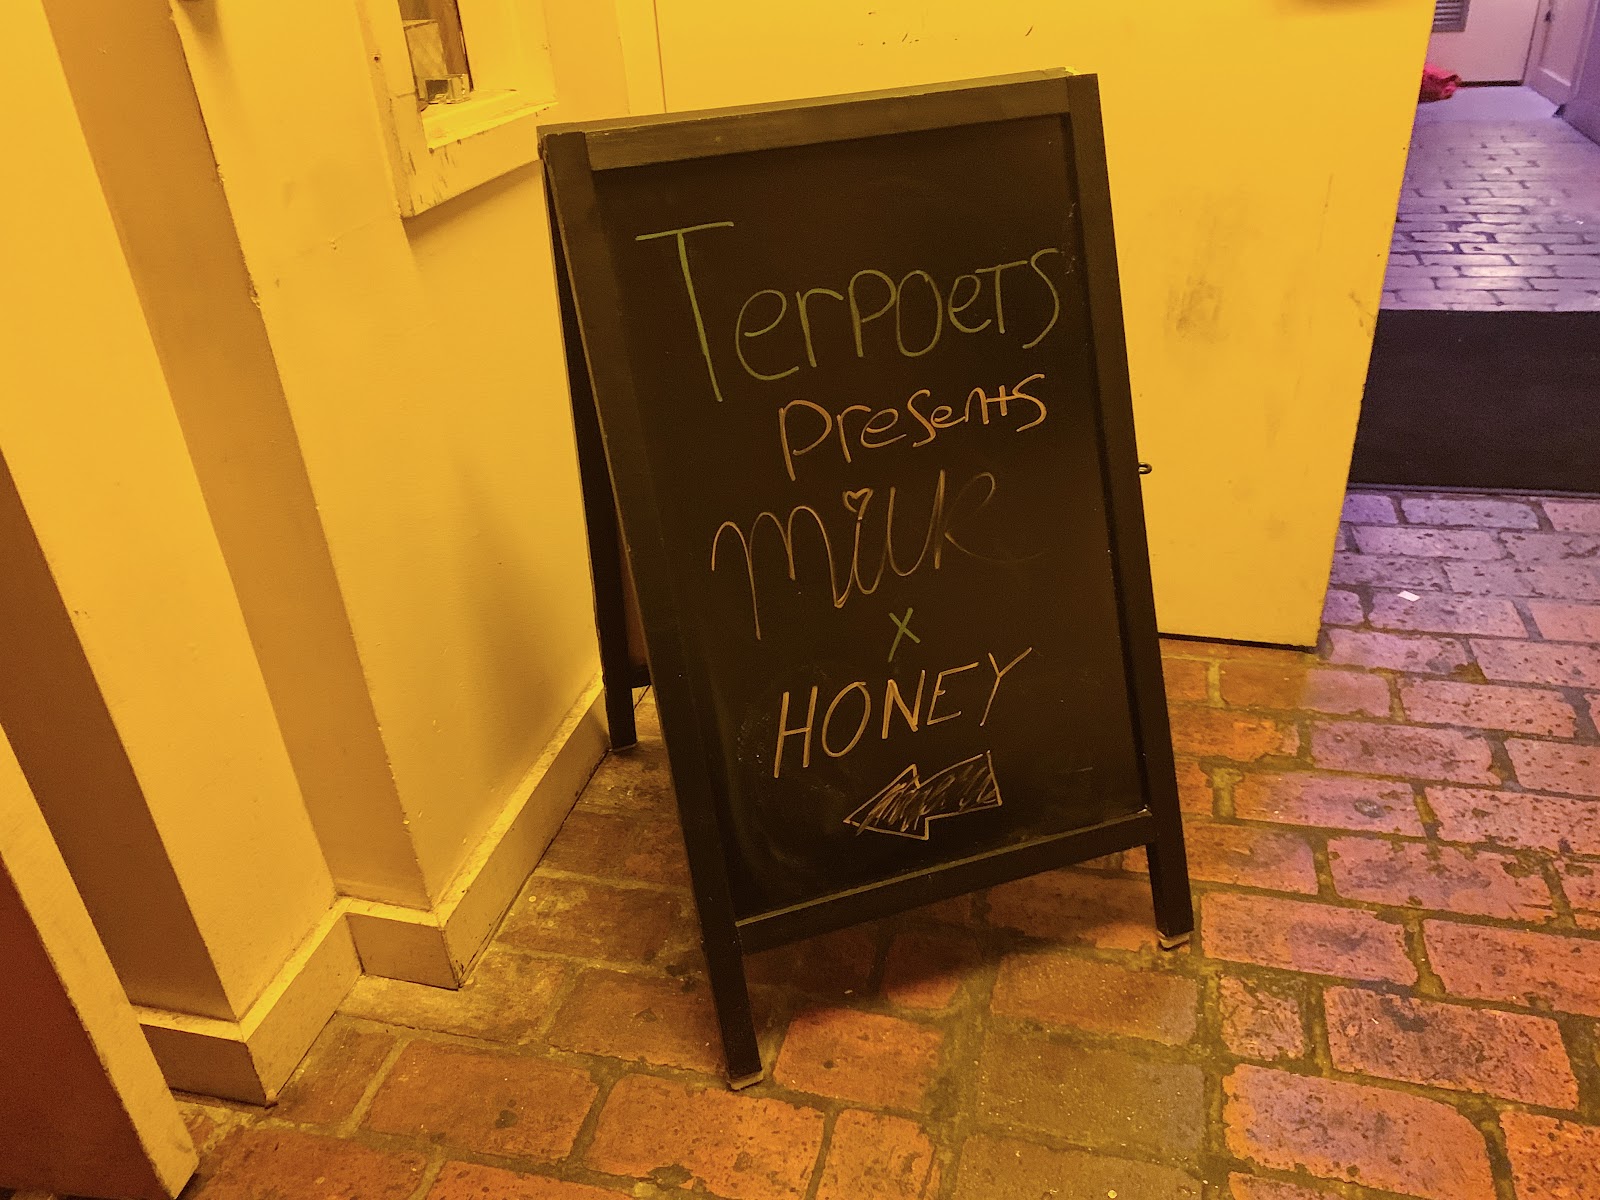 Terpoets
presents
milk
x
HONEY